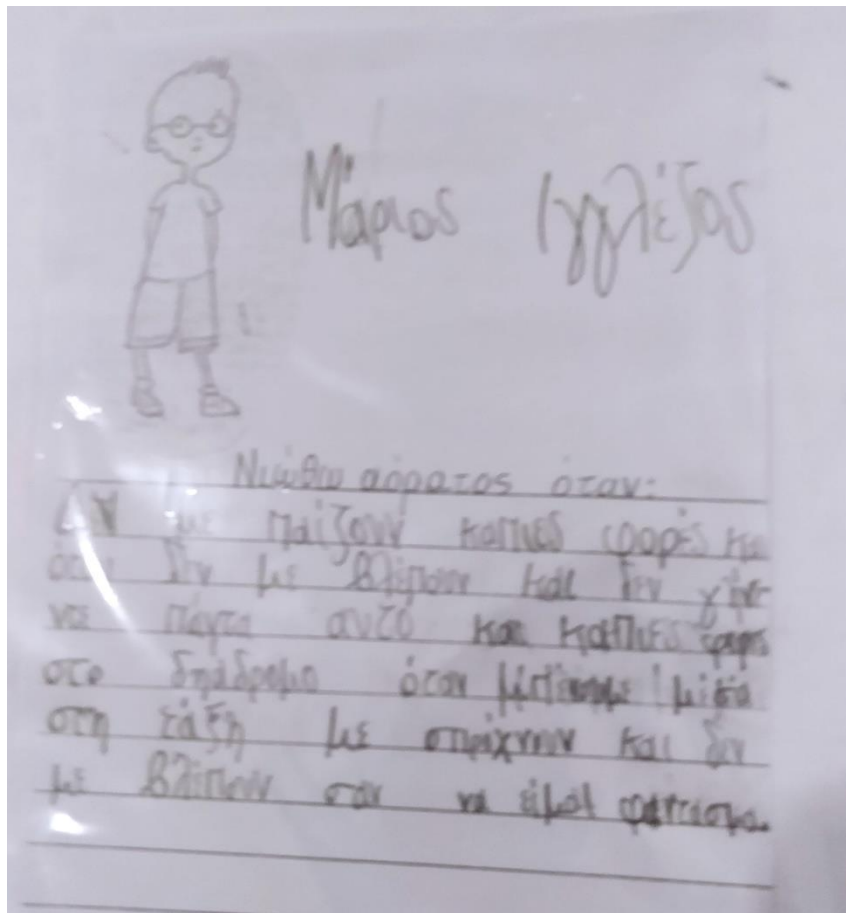 Μάριος Ιγγλέζος
Νιώθω αόρατος όταν:
Δν με παίζουν καπιες φορές κα
όταν δεν με βλέπουν και δεν γίνε
νε πάντα αυτό και καπιες φορές
στο δηάδρομο όταν μπένουμε μέσα
στη τάξη με σπρόχνουν και δεν
με βλέπουν σαν να είμαι φάντασμα.